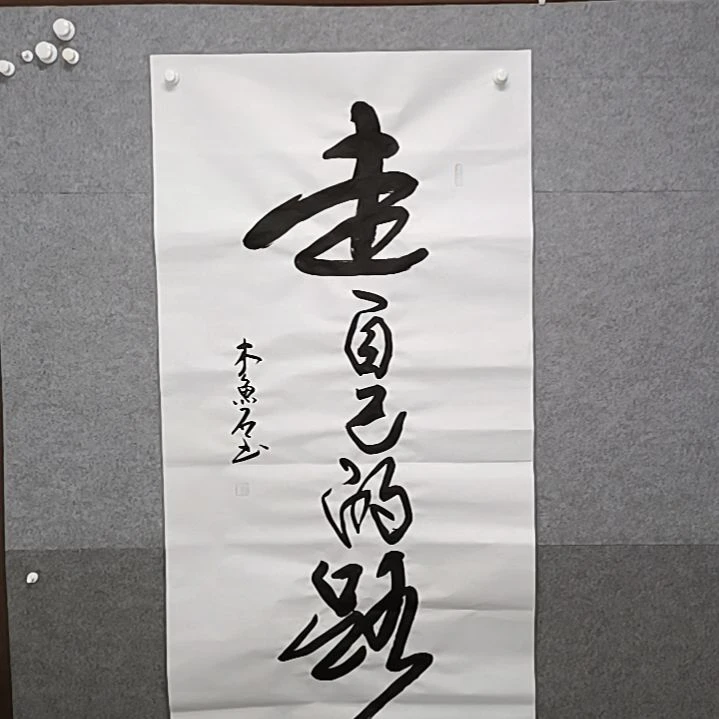 走自己的路
木鱼石书